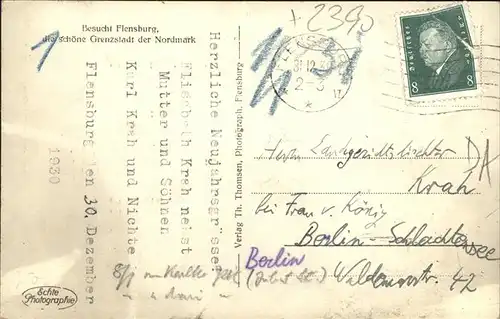 +2390
Besucht Flensburg,
die schöne Grenzstadt der Nordmark
1
Herzliche Neujahrsgrüsse
Elisabeth Krah nebst
Mutter und Söhnen
Karl Krah und Nichte
Flensburg den 30. Dezember
1930
Verlag Th. Thomsen, Photograph, Flensburg
FLENSBURG
31.12.30
2-3
*
Deutsches Reich
8 8
Herrn Landgerichtsdirektor
Krah
bei Frau v. König
Berlin-Schlachtensee
Waldemarstr. 42
Berlin
Echte
Photographie